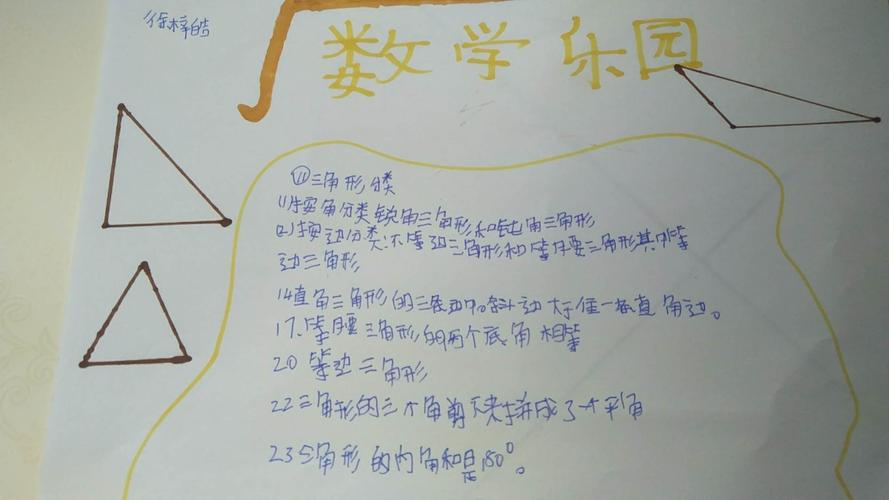 徐梓皓
数学乐园
⑪三角形分类
(1)按角分类锐角三角形和钝角三角形
(2)按边分类:不等边三角形和等腰三角形其中等
边三角形
14直角三角形的三条边中。斜边大于任一条直角边。
17.等腰三角形的两个底角相等
20 等边三角形
22三角形的三个角剪下来拼成了一个平角
23三角形的内角和是180°。